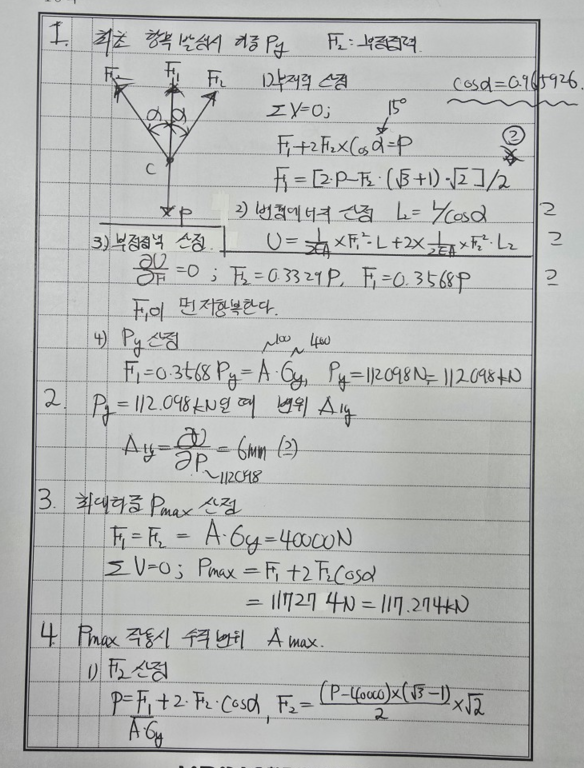 1. 최초 항복 발생시 하중 Py F₂: 부정정력.
F₂ F₁ F₂
α α
C
P
1) 부재력 산정 cosα=0.965926
ΣV=0; 15°
F₁+2F₂×Cosα=P ②
F₁=[2·P-F₂·(√3+1)·√2]/2
2) 변형에너지 산정 L₂=L/cosα 2
U=1/2EA×F₁²·L+2×1/2EA×F₂²·L₂ 2
3) 부정정력 산정
∂U/∂F=0; F₂=0.3329P, F₁=0.3568P 2
F₁이 먼저항복한다.
4) Py 산정 ~100 ~400
F₁=0.3568Py=A·σy, Py=112098N=112.098kN
2. Py=112.098kN일 때 변위 Δ1y
Δ1y=∂U/∂P=6mm (2)
~112098
3. 최대하중 Pmax 산정
F₁=F₂=A·σy=40000N
ΣV=0; Pmax=F₁+2F₂Cosα
=117274N=117.274kN
4. Pmax 작용시 수직변위 Δmax.
1) F₂ 산정
P=F₁+2·F₂·Cosα, F₂=(P-40000)×(√3-1)/2×√2
A·σy